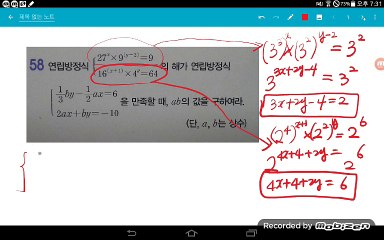 73% 오후 7:31
제목 없는 노트
58 연립방정식 { 27ˣ×9⁽ʸ⁻²⁾=9
16⁽ˣ⁺¹⁾×4ʸ=64 의 해가 연립방정식
{ 1/3 by − 1/2 ax=6
2ax+by=−10 을 만족할 때, ab의 값을 구하여라.
(단, a, b는 상수)
(3³)ˣ×(3²)ʸ⁻²=3²
3³ˣ⁺²ʸ⁻⁴=3²
3x+2y-4=2
(2⁴)ˣ⁺¹×(2²)ʸ=2⁶
2⁴ˣ⁺⁴⁺²ʸ=2⁶
4x+4+2y=6
{
Recorded by Mobizen